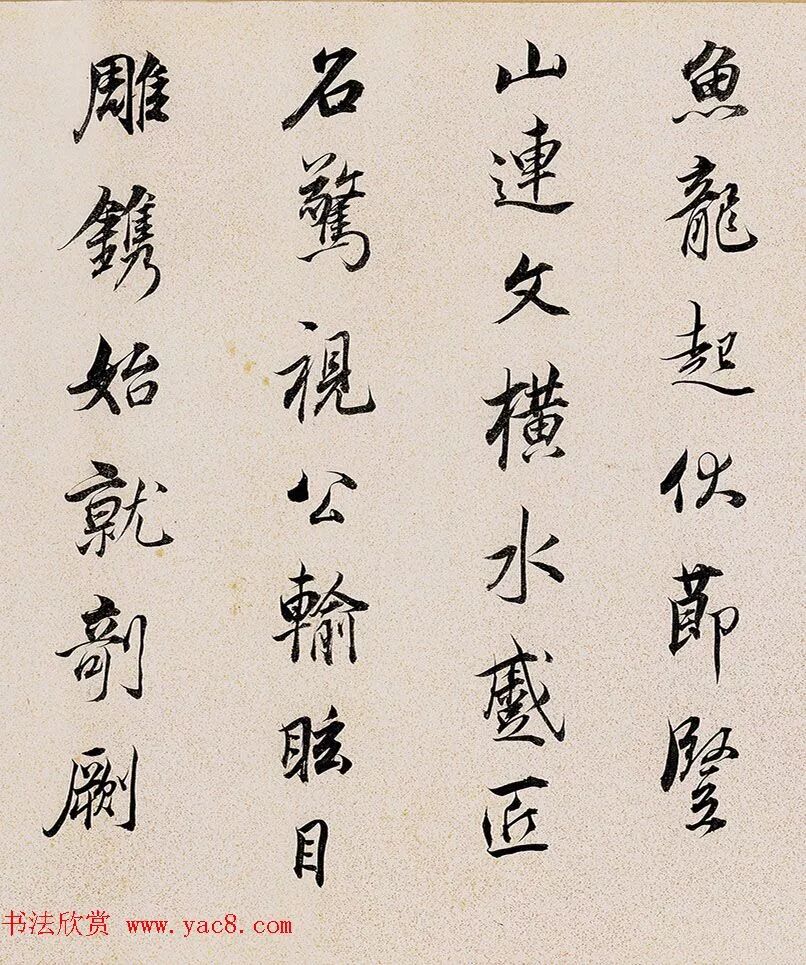 魚龍起伏節竪
山連文橫水蹙匠
石驚視公輸眩目
雕鐫始就剞劂
书法欣赏 www.yac8.com